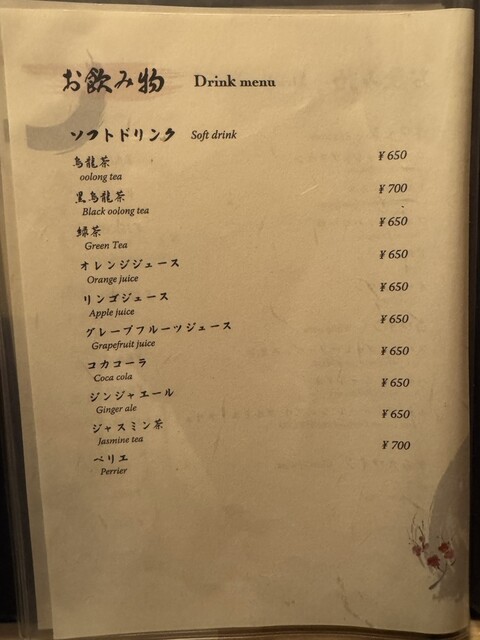 お飲み物 Drink menu
ソフトドリンク Soft drink
烏龍茶 ¥650
oolong tea
黒烏龍茶 ¥700
Black oolong tea
緑茶 ¥650
Green Tea
オレンジジュース ¥650
Orange juice
リンゴジュース ¥650
Apple juice
グレープフルーツジュース ¥650
Grapefruit juice
コカコーラ ¥650
Coca cola
ジンジャエール ¥650
Ginger ale
ジャスミン茶 ¥650
Jasmine tea
ペリエ ¥700
Perrier